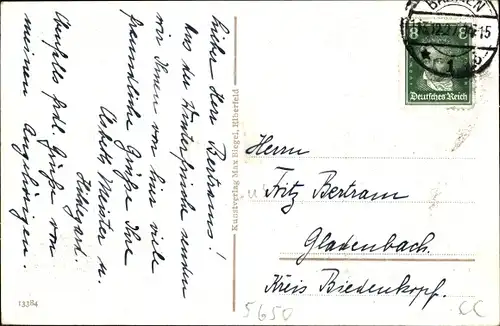 Lieber Herr Bertram!
Aus der Winterfrische senden
wir Ihnen von hier viele
freundliche Grüße Ihre
Meister u.
Hildegard.
Ebenfalls frdl. Grüße von
meinen Angehörigen.
13384
Kunstverlag Max Biegel, Elberfeld
BARMEN
8 8
Deutsches Reich
Herrn
Fritz Bertram
Gladenbach.
Kreis Biedenkopf.
5650
CC